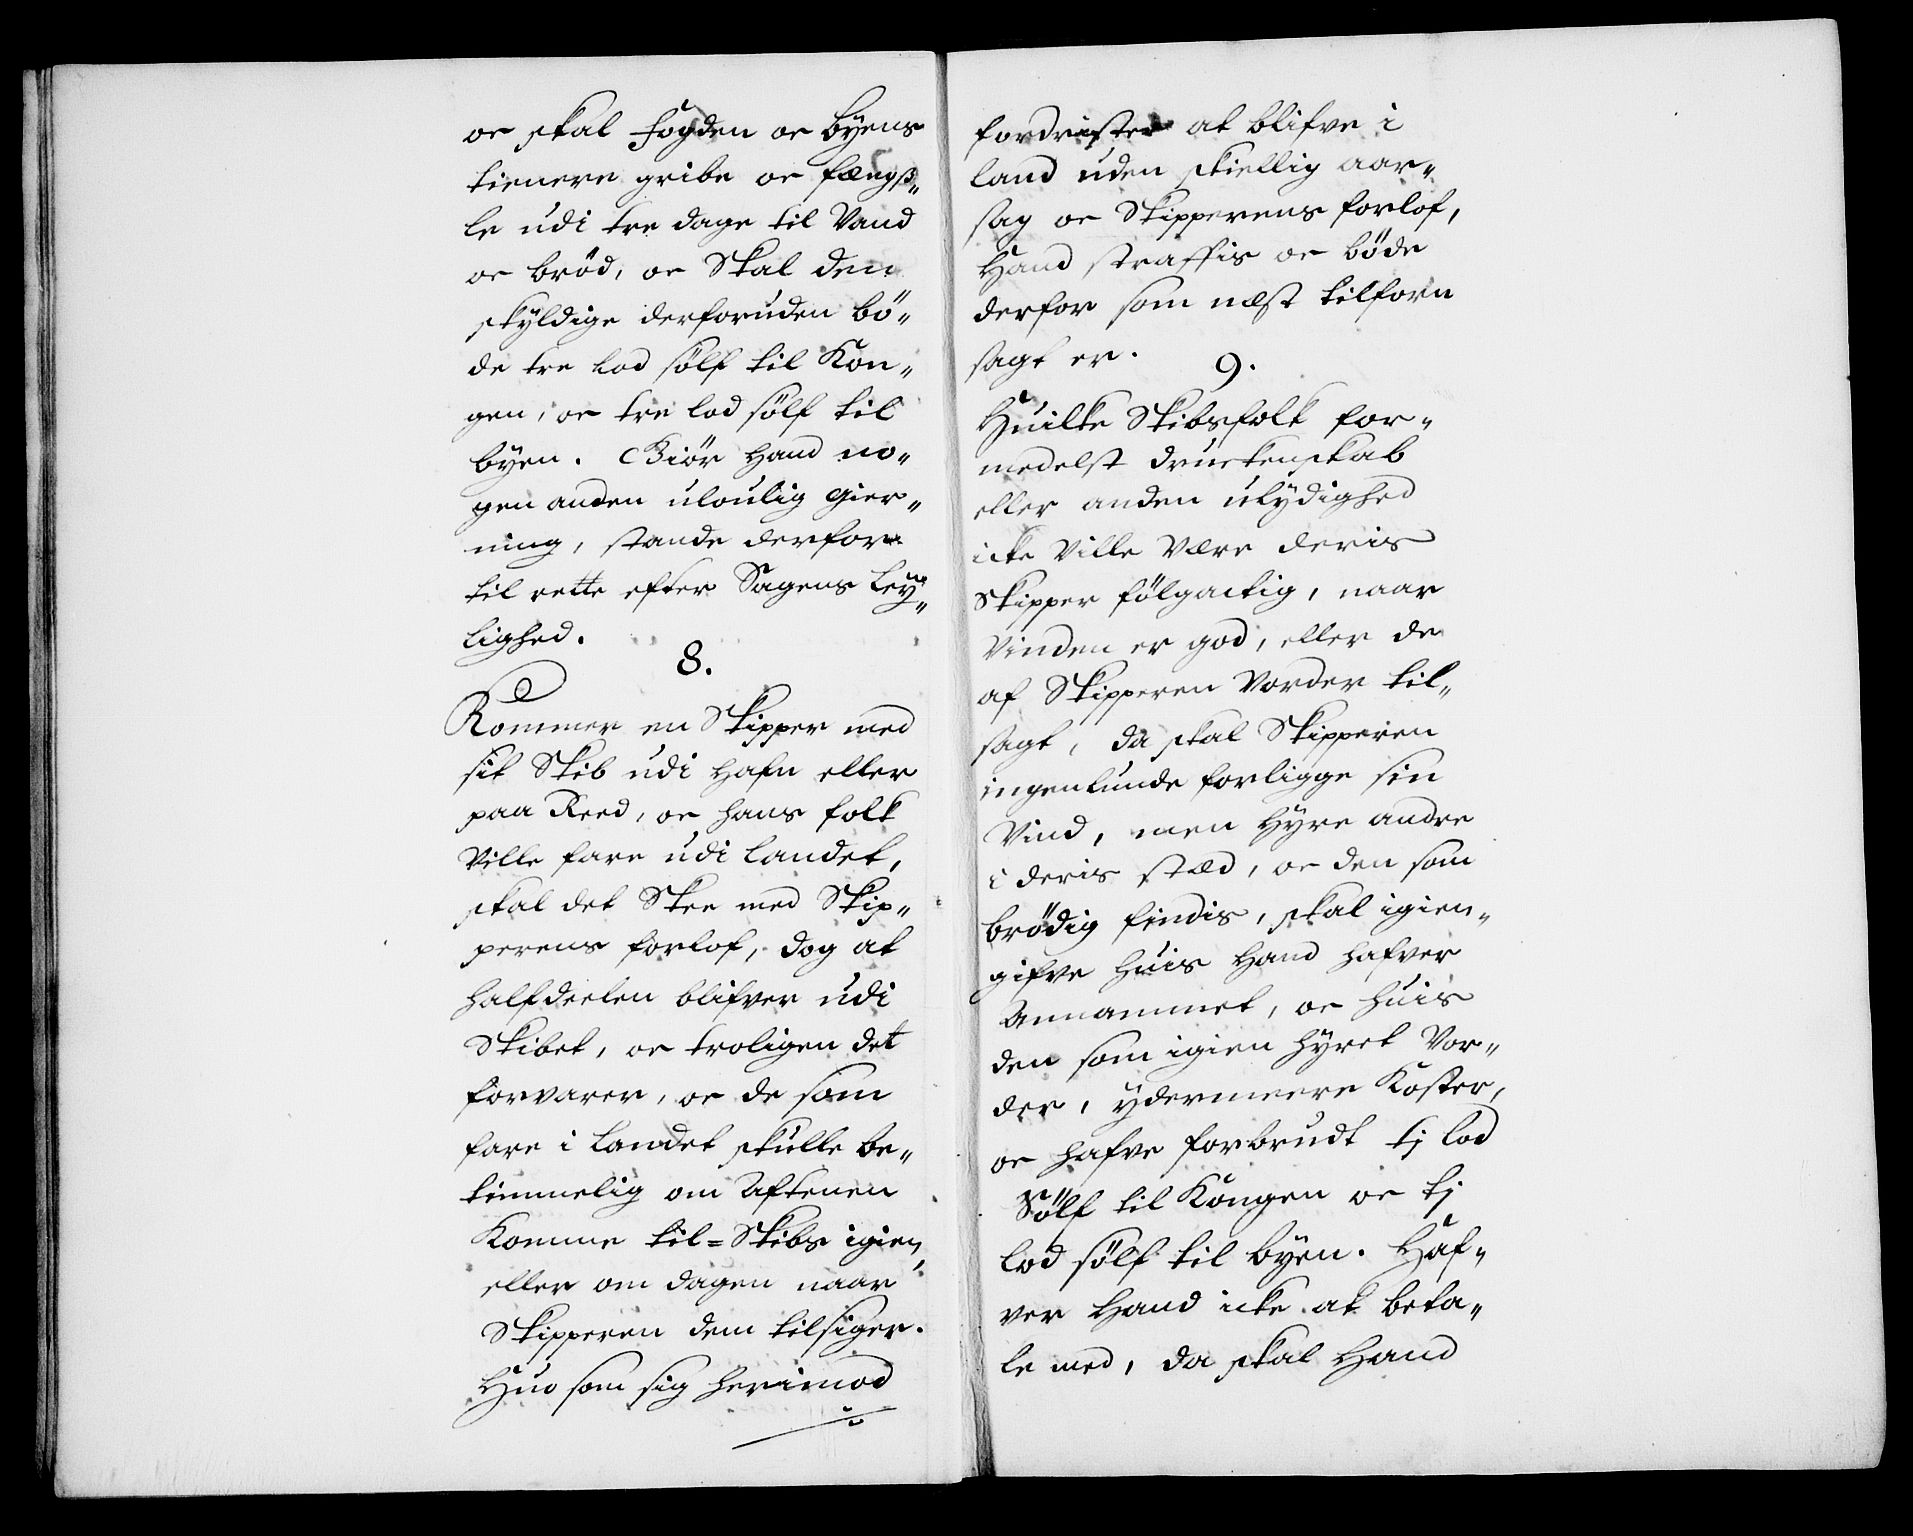 oc skal Fogden oc byens
tienere gribe oc fængß„
le udi tre dage til Vand
oc brød, oc Skal den
skyldige derforuden bö„
de tre Lod sölf til Kon„
gen, oc tre lod sölf til
byen. Giör Hand no„
gen anden uloulig Gier„
ning, stande derfor
til rette efter Sagens Ley„
lighed.
8.
Kommer en Skipper med
sit Skib udi Hafn eller
paa Reed, oc hans folk
Ville fare udi Landet,
skal det Skee med Skip„
perens forlof, dog at
halfdeelen blifver udi
Skibet, oc troligen det
forvarer, oc de som
fare i Landet skulle be„
timmelig om Aftenen
Komme til=Skibs igien,
eller om dagen naar
Skipperen dem tilsiger.
Huo som sig herimod
fordrister at blifve i
land uden skiellig aar„
sag oc Skipperens forlof,
Hand straffis oc böde
derfor som næst tilforn
sagt er.
9.
Huilke Skibsfolk for„
medelst druckenskab
eller anden ulydighed
icke Ville Være deris
Skipper fölgactig, naar
Vinden er god, eller de
af Skipperen Vorder til„
sagt, da skal Skipperen
ingenlunde forligge sin
Vind, men Hyre andre
i deris stæd, oc den som
brödig findis, skal igien„
gifve huis Hand hafver
Annammet, oc huis
den som igien hyret Vor„
der, ydermeere Koster,
oc hafve forbrudt tj lod
Sölf til Kongen oc tj
lod sölf til byen. Haf„
ver Hand icke at beta„
le med, da skal Hand